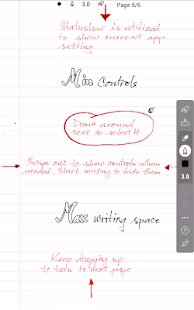 3.0 Page 5/6
Statusbar is utilized
to show current app
setting.
Min Controls
Draw around
text to select it
Swipe out to show controls when
needed. Start writing to hide them
3.0
Max writing space
Keep dragging up
to turn to next page